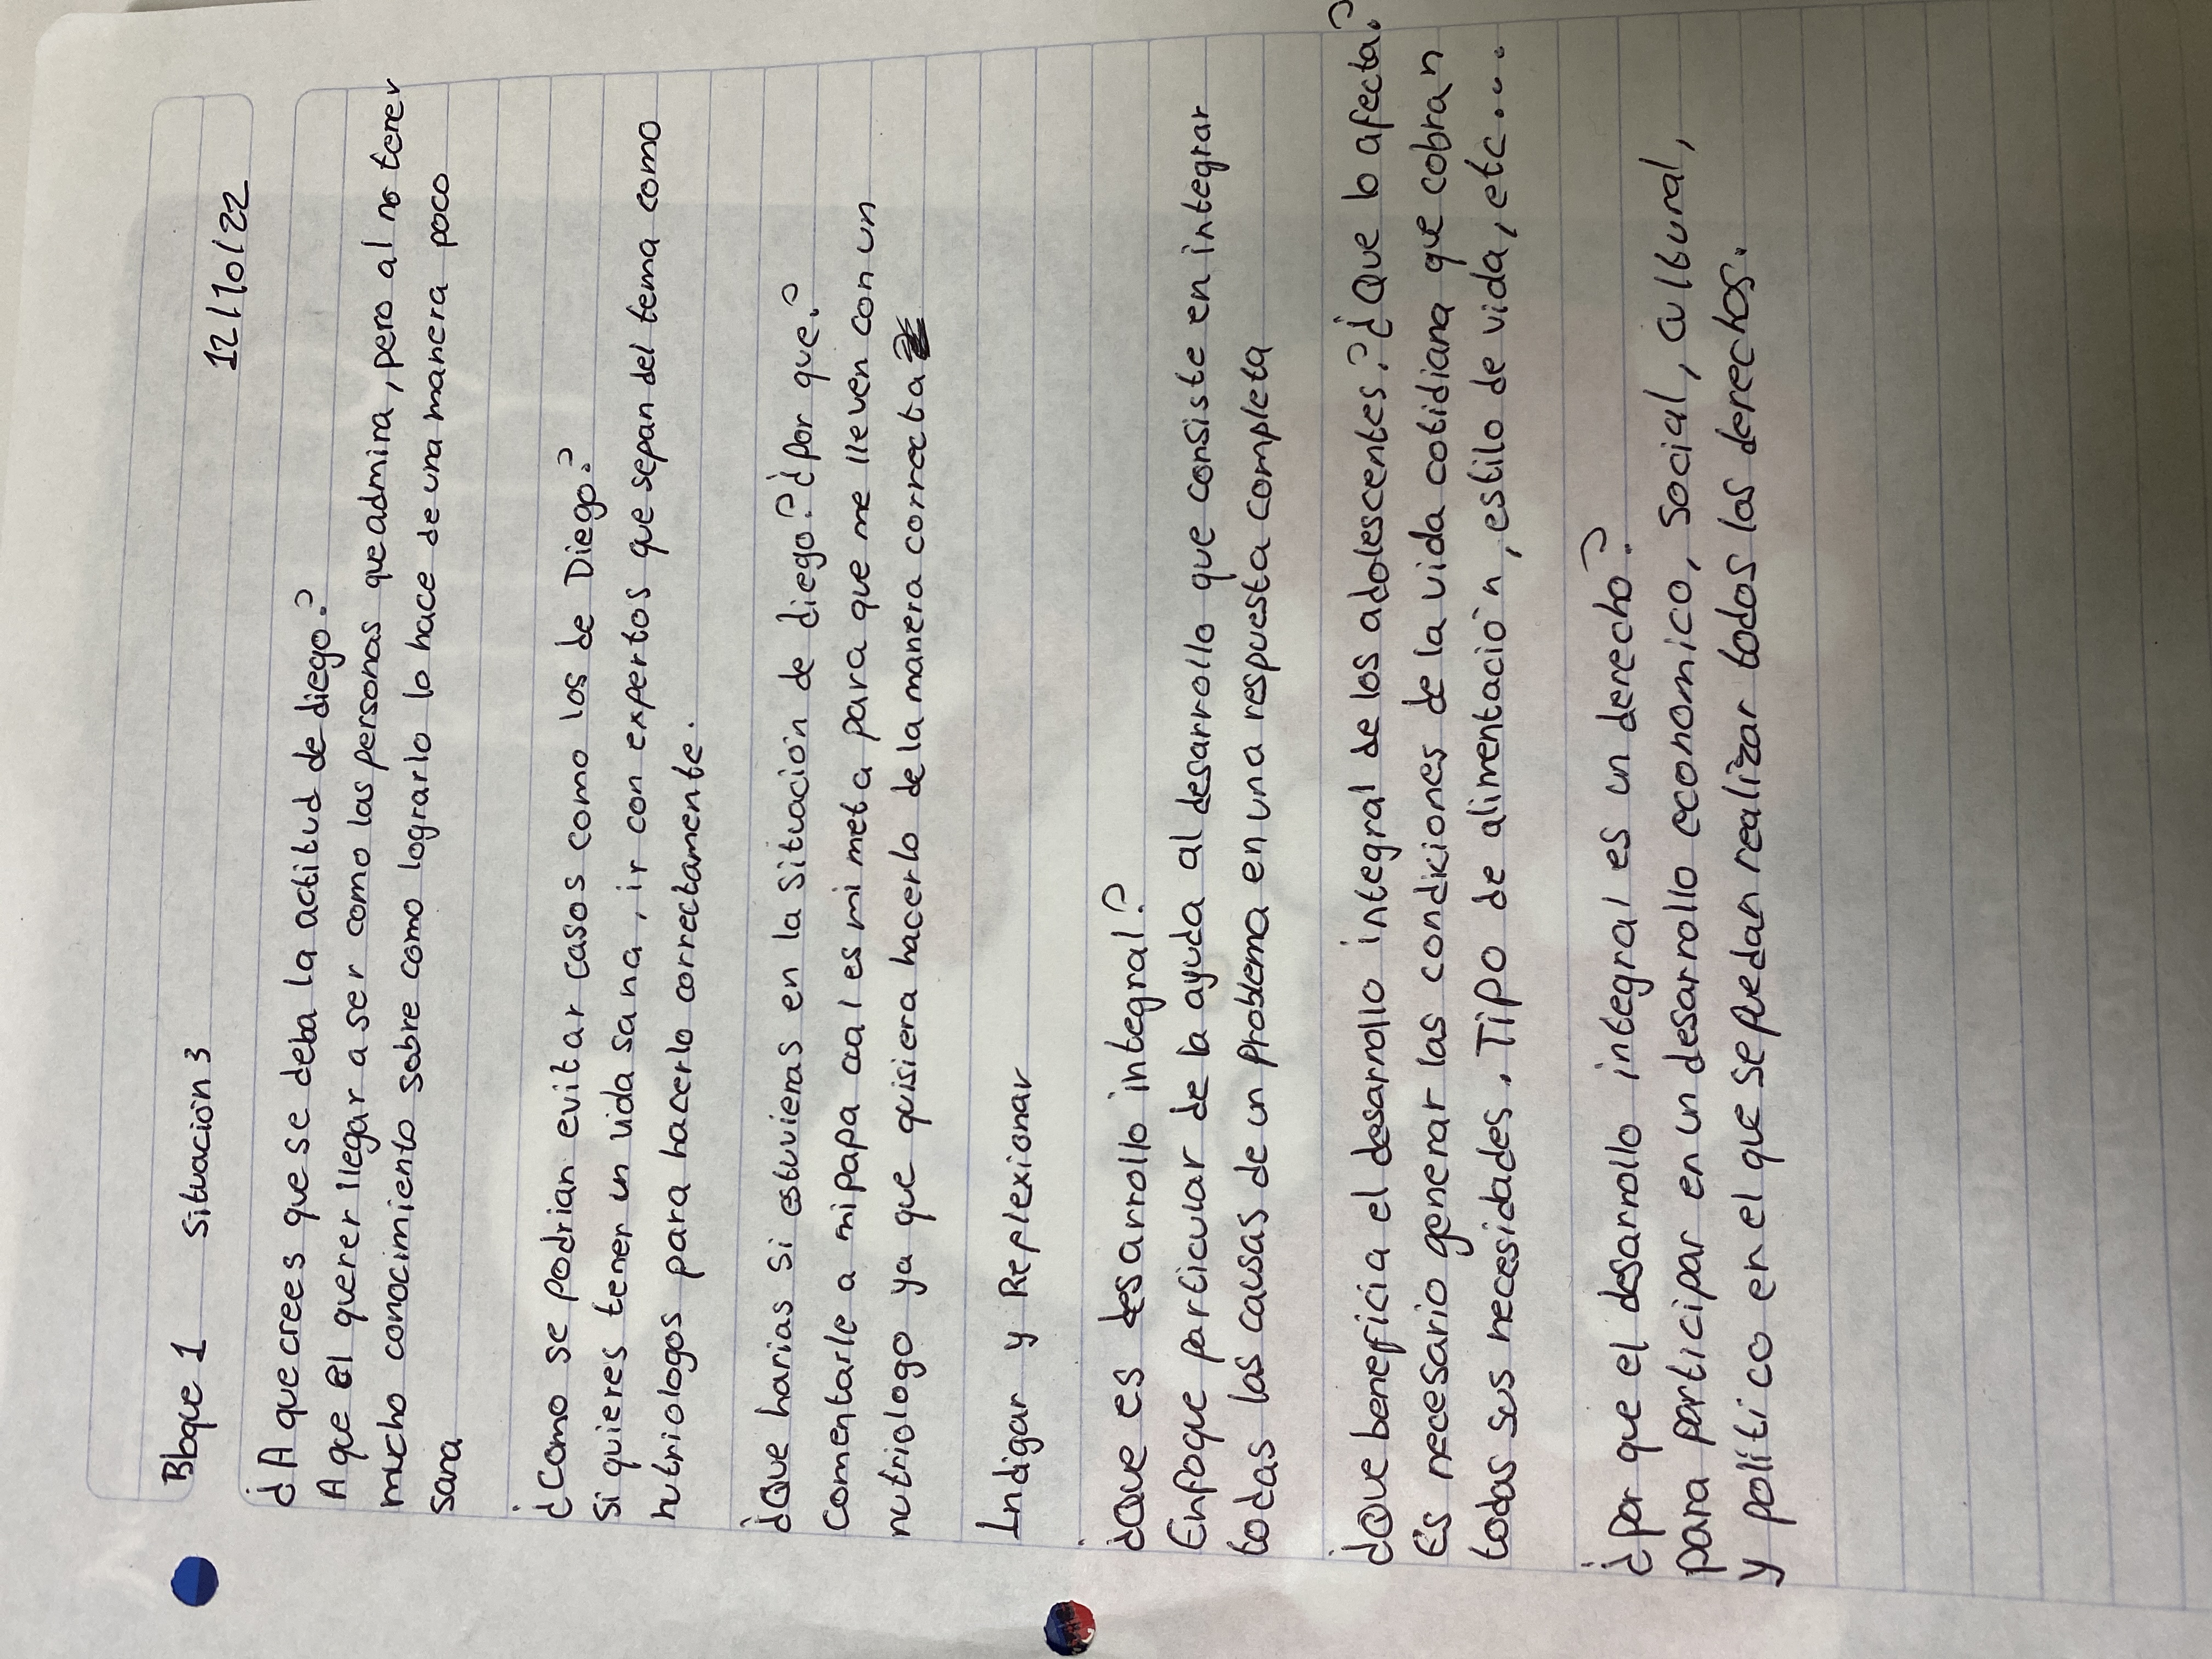 Bloque 1 Situación 3 12/10/22
¿A que crees que se deba la actitud de diego?
A que el querer llegar a ser como las personas que admira, pero al no tener
mucho conocimiento sobre como lograrlo lo hace de una manera poco
sana
¿Como se podrian evitar casos como los de Diego?
Si quieres tener un vida sana, ir con expertos que sepan del tema como
nutriologos para hacerlo correctamente.
¿Que harias si estuvieras en la situación de diego? ¿por que?
Comentarle a mi papa cual es mi meta para que me lleven con un
nutriologo ya que quisiera hacerlo de la manera correcta
Indigar y Replexionar
¿Que es desarrollo integral?
Enfoque particular de la ayuda al desarrollo que consiste en integrar
todas las causas de un problema en una respuesta completa
¿Que beneficia el desarrollo integral de los adolescentes? ¿Que lo afecta?
Es necesario generar las condiciones de la vida cotidiana que cobran
todas sus necesidades. Tipo de alimentación, estilo de vida, etc...
¿por que el desarrollo integral es un derecho?
para participar en un desarrollo economico, social, cultural,
y político en el que se puedan realizar todos los derechos.